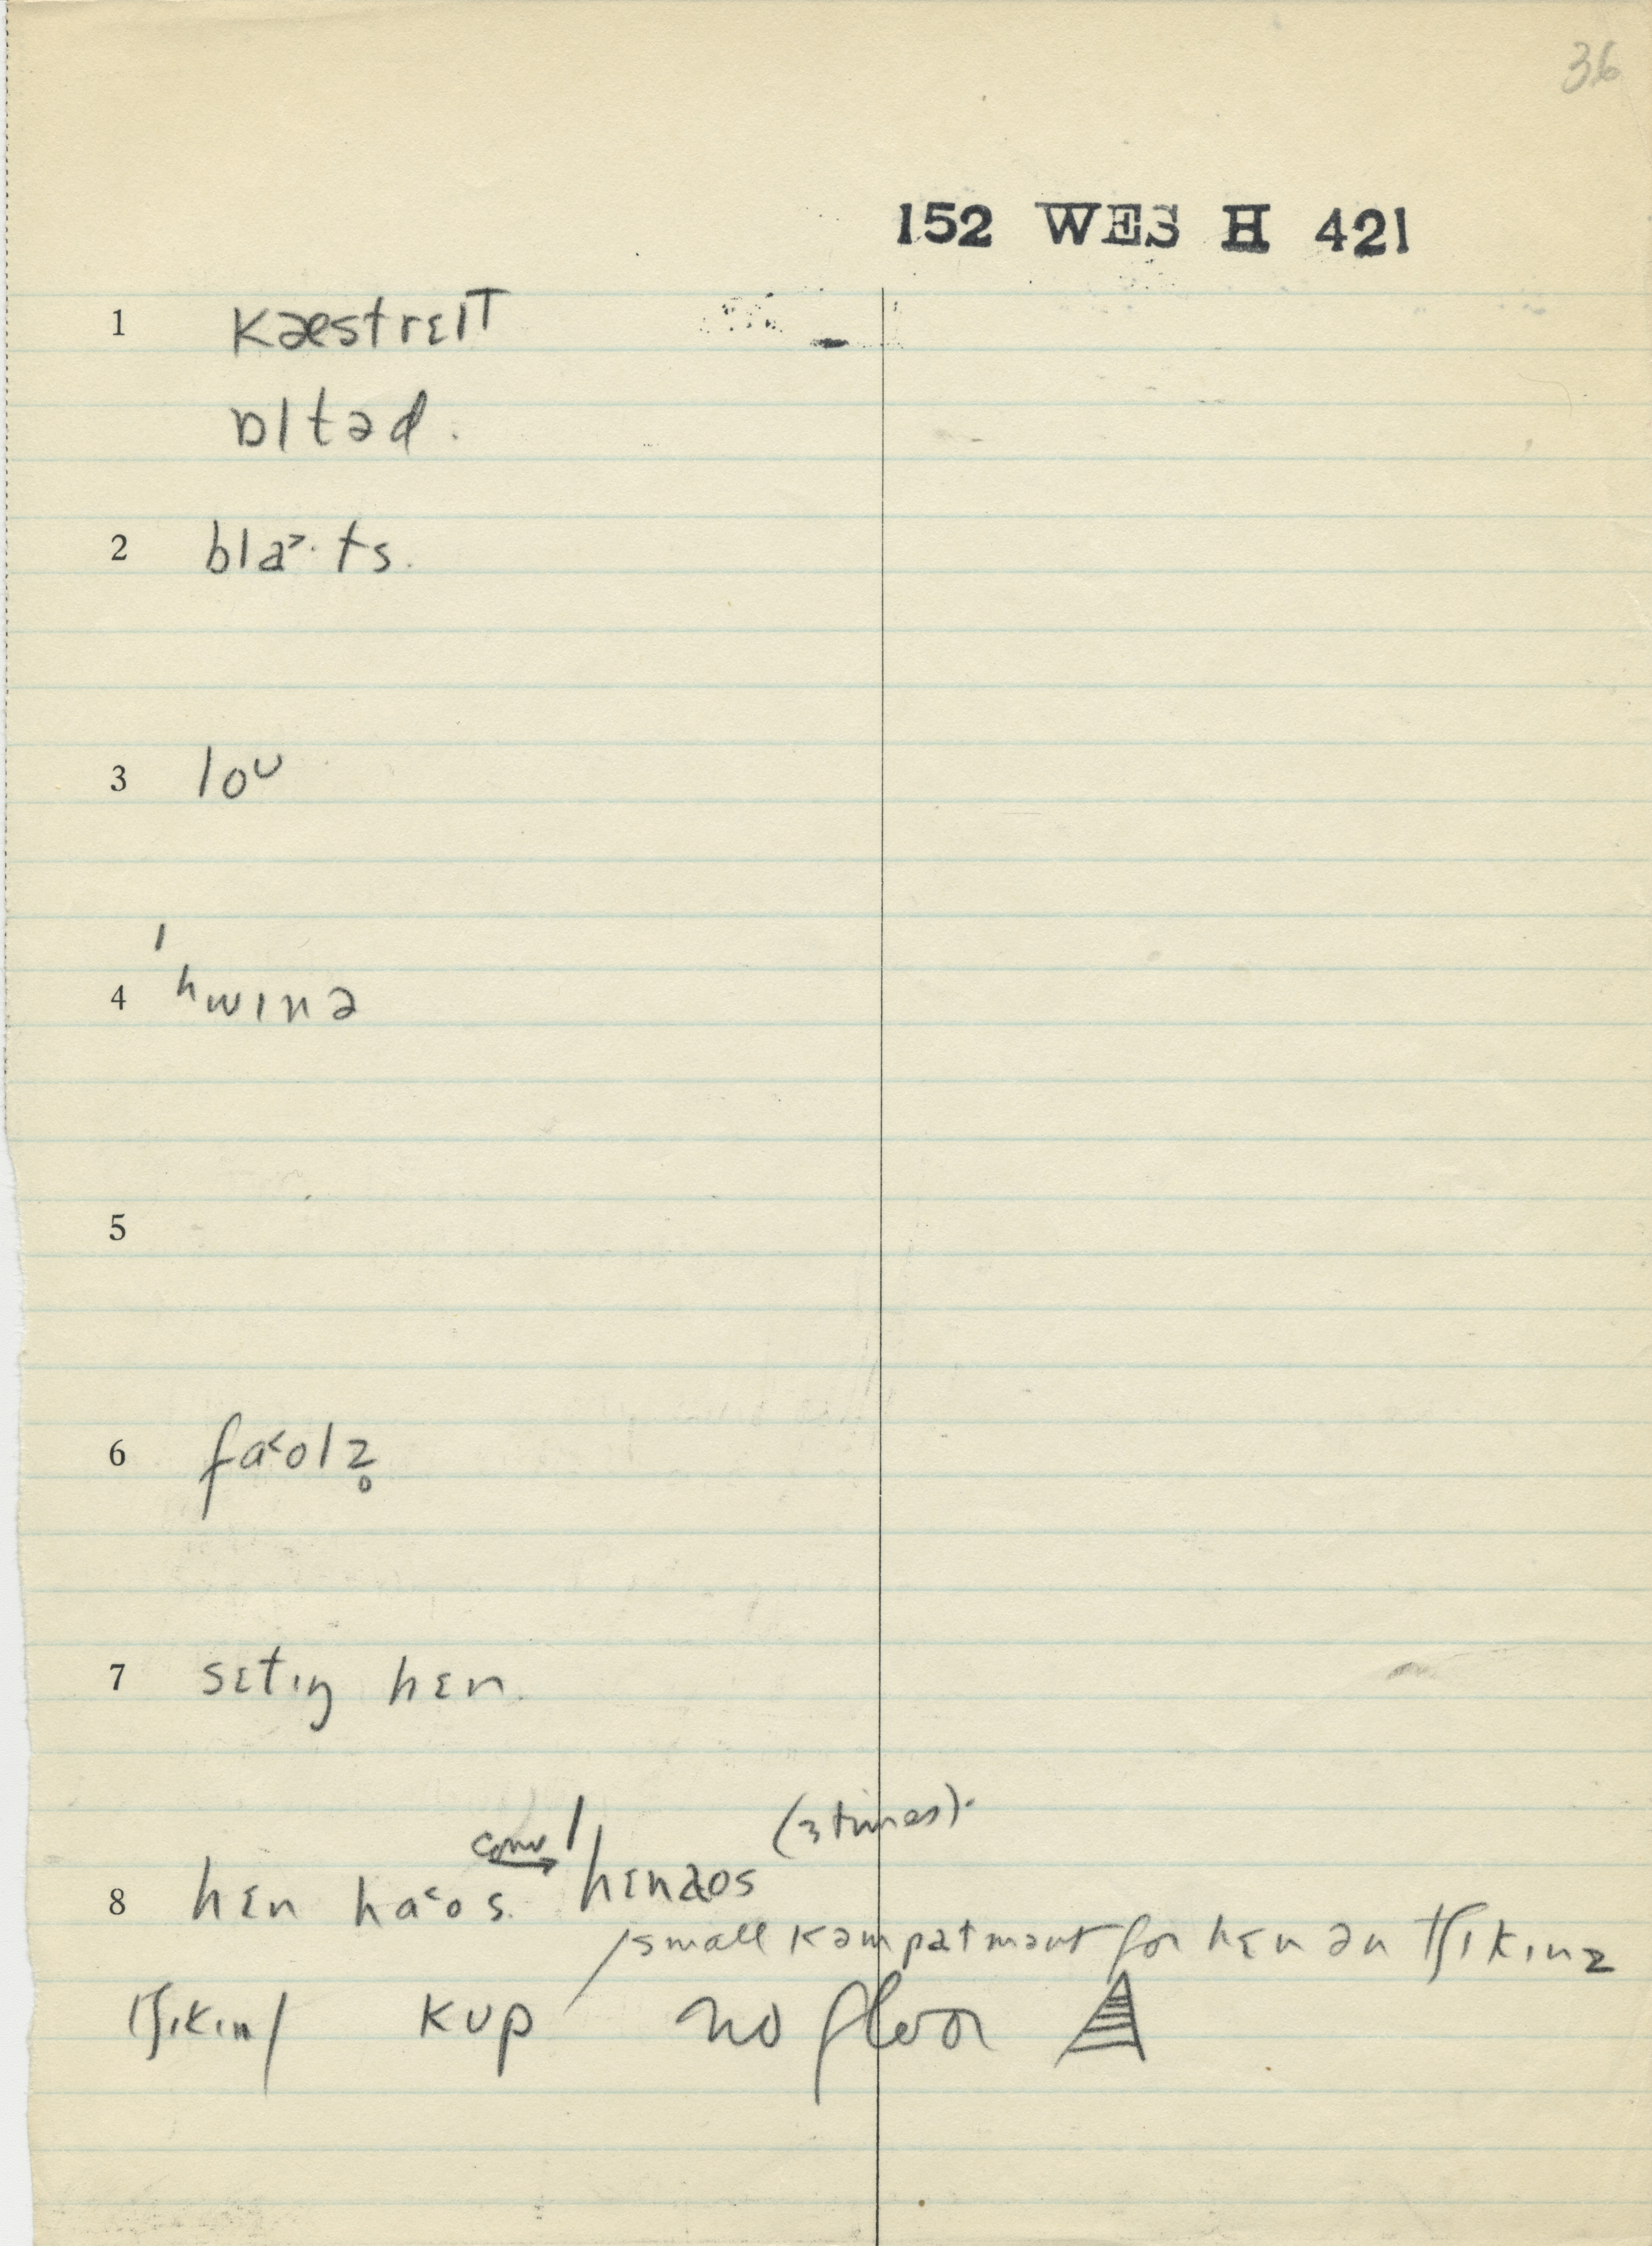 36
152 WES H 421
1 kæstreɪt
ɒltəd.
2 bla˃·ts.
3 loᴜ
4 ˈʰwɪnə
5
6 fa˂olz̥
7 sɛtɪŋ hɛn.
8 hɛn ha˂os. conv → ˈhɛnaos (3 times).
/small kəmpatmənt for hɛn ən tʃɪkɪnz
tʃɪkɪn/ kup no floor